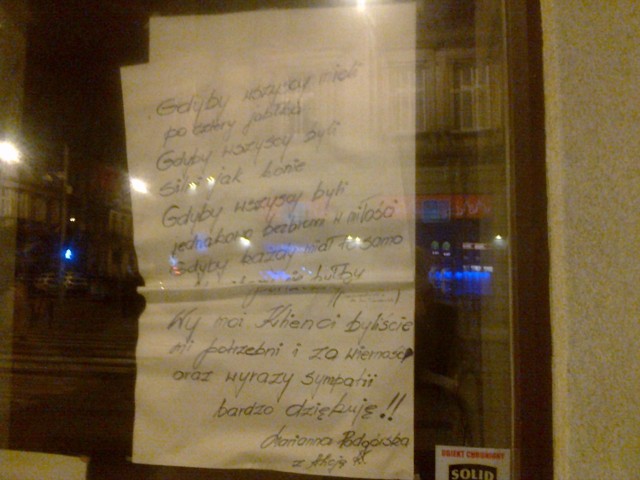 Gdyby wszyscy mieli
po cztery jabłka
Gdyby wszyscy byli
silni jak konie
Gdyby wszyscy byli
jednakowo bezbronni w miłości
Gdyby każdy miał to samo
Wy moi Klienci byliście
mi potrzebni i za wierność
oraz wyrazy sympatii
bardzo dziękuję!!
Marianna Podgórska
OBIEKT CHRONIONY
SOLID